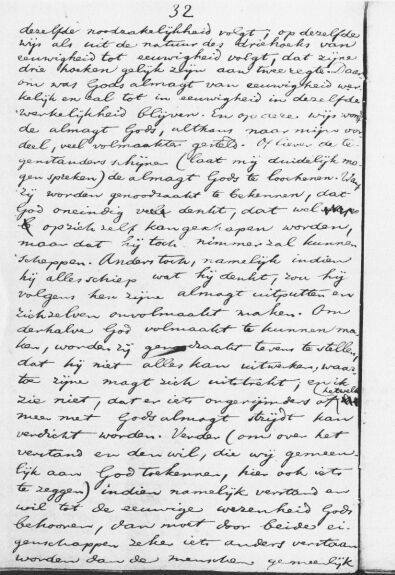 32
dezelfde noodzakelijkheid volgt; op dezelfde
wijs als uit de natuur des driehoeks van
eeuwigheid tot eeuwigheid volgt, dat zijne
drie hoeken gelijk zijn aan twee regte. Daar
om was Gods almagt van eeuwigheid wer
kelijk en zal tot in eeuwigheid in dezelfde
werkelijkheid blijven. En op deze wijs wordt
de almagt Gods, althans naar mijn oor
deel, veel volmaakter gesteld. Of liever de te
genstanders schijnen (laat mij duidelijk mo
gen spreken) de almagt Gods te loochenen. Want
zij worden genoodzaakt te bekennen, dat
God oneindig veel denkt, dat wel
op zich zelf kan geschapen worden,
maar dat hij toch nimmer zal kunnen
scheppen. Anders toch, namelijk indien
hij alles schiep wat hij denkt, zou hij
volgens hen zijne almagt uitputten en
zich zelven onvolmaakt maken. Om
derhalve God volmaakt te kunnen ma
ken, worden zij genoodzaakt tevens te stellen,
dat hij niet alles kan uitwerken, waar
toe zijne magt zich uitstrekt; en ik
zie niet, dat er iets ongerijmders of hetwelk
meer met Gods almagt strijdt kan
verdicht worden. Verder (om over het
verstand en den wil, die wij gemeen
lijk aan God toekennen, hier ook iets
te zeggen) indien namelijk verstand en
wil tot de eeuwige wezenheid Gods
behooren, dan moet door beide ei
genschappen zeker iets anders verstaan
worden dan de menschen gemeenlijk